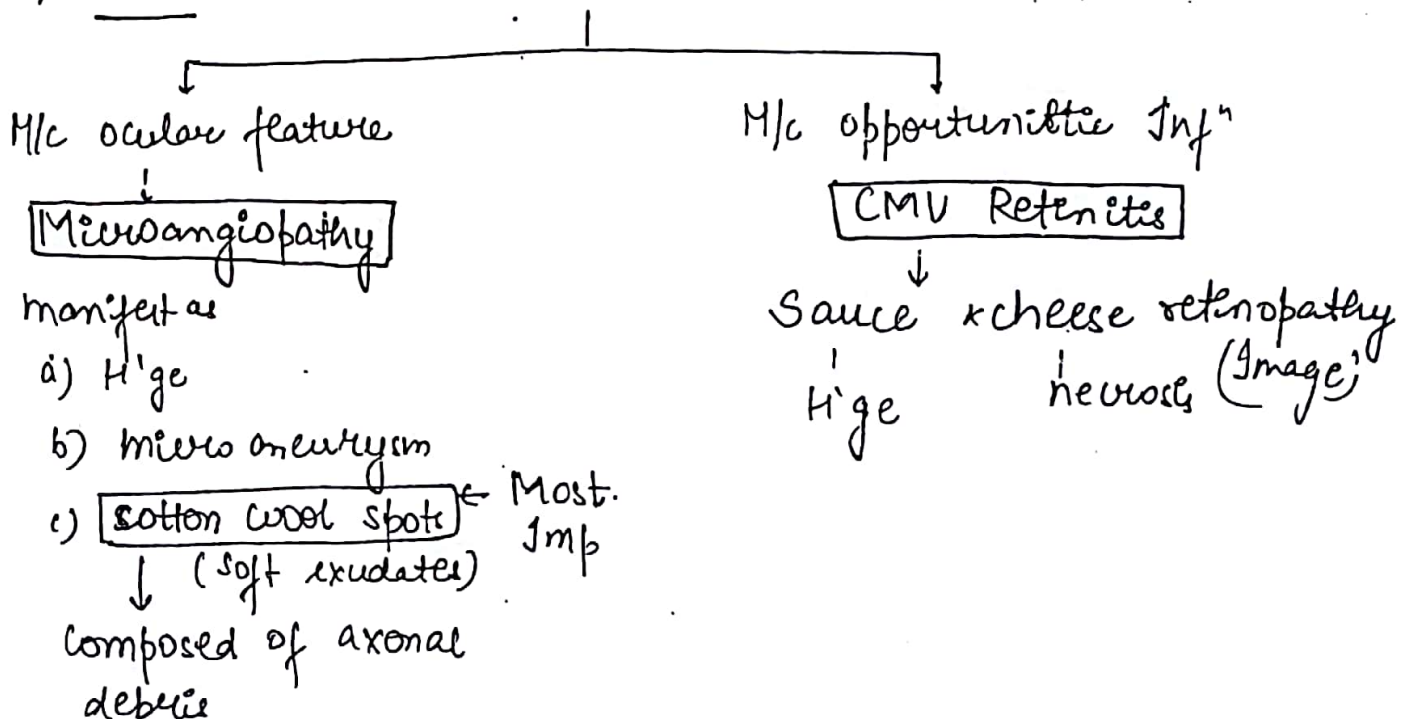 M/c ocular feature
Microangiopathy
manifest as
a) H'ge
b) micro aneurysm
c) cotton wool spots ← Most.
Imp
(soft exudates)
composed of axonal
debris
M/c opportunistic Infⁿ
CMV Retinitis
Sauce & cheese retinopathy
H'ge
necrosis (Image)